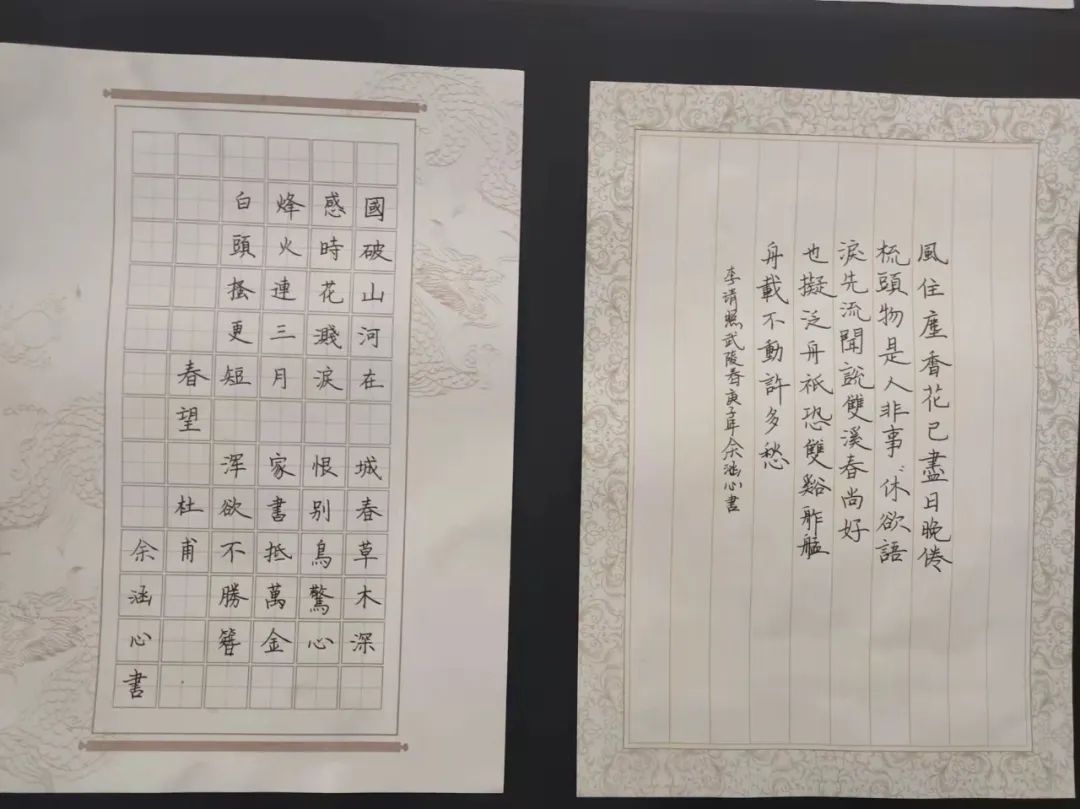 國破山河在 城春草木深
感時花濺淚 恨别鳥驚心
烽火連三月 家書抵萬金
白頭搔更短 浑欲不勝簪
春望 杜甫
余涵心書
風住塵香花已盡日晚倦
梳頭物是人非事〻休欲語
淚先流聞說雙溪春尚好
也擬泛舟祇恐雙谿舴艋
舟載不動許多愁
李清照武陵春庚子年余涵心書